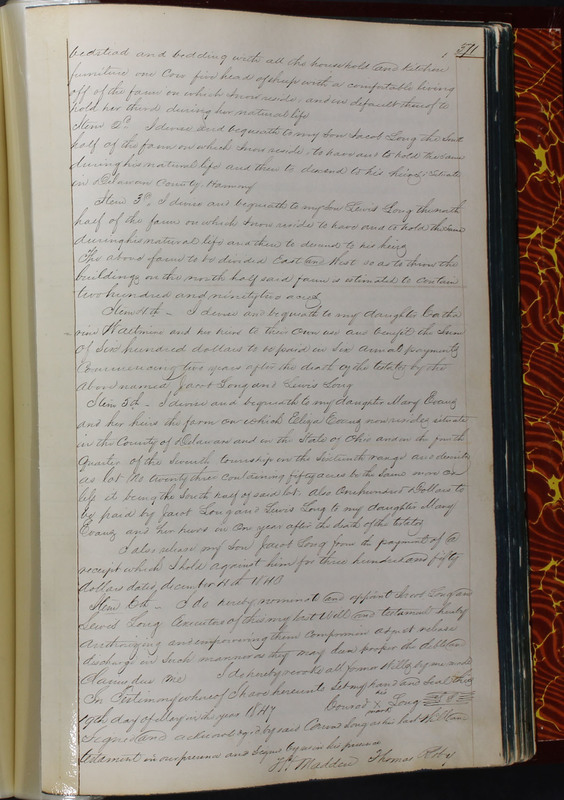 571
bedstead and bedding with all the household and kitchen
furniture one Cow five head of sheep with a comfortable living
off of the farm on which I now reside, and in default thereof to
hold her third during her natural life
Item 2d. I devise and bequeath to my Son Jacob Long the South
half of the farm on which I now reside, to have and to hold the same
during his natural life and then to descend to his heirs, situate
in Delaware County. Harmony
Item 3d, I devise and bequeath to my Son Lewis Long the north
half of the farm on which I now reside to have and to hold the same
during his natural life and then to descend to his heirs
The above farm to be divided East and West so as to throw the
buildings on the north half said farm is estimated to contain
two hundred and ninety two acres
Item 4th - I devise and bequeath to my daughter Catha
rine Waltmire and her heirs to their own use and benefit the Sum
of Six hundred dollars to be paid in Six annual payments
Commencing two years after the death of the testator by the
above named Jacob Long and Lewis Long
Item 5th - I devise and bequeath to my daughter Mary Evans
and her heirs the farm on which Eliza Evans now resides, situate
in the County of Delaware and in the State of Ohio and in the fourth
Quarter of the Seventh township in the Sixteenth range and
as lot No twenty three containing fifty acres be the Same more or
less it being the South half of said lot. Also One hundred Dollars to
be paid by Jacob Long and Lewis Long to my daughter Mary
Evans and her heirs in One year after the death of the testator
I also release my Son Jacob Long from the payment of a
receipt which I hold against him for three hundred and fifty
dollars dated december 11th 1843
Item 6th - I do hereby nominate and appoint Jacob Long and
Lewis Long Executors of this my last Will and testament hereby
authorizing and empowering them compromise adjust release
discharge in Such manner as they may deem proper the debts and
Claims due me I do hereby revoke all former Wills by me made
In Testimony whereof I have hereunto Set my hand and Seal this
19th day of May in the year 1847 Conrad his X mark Long
Signed and acknowledged by said Conrad Long as his last Will and
testament in our presence and Signed by us in his presence
Wm Madden Thomas